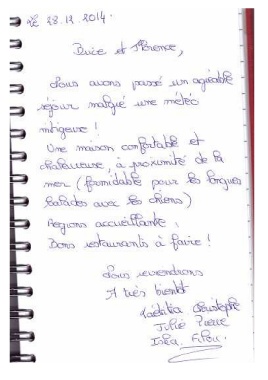 le 28.12.2014.
et Florence,
Nous avons passé un agréable
séjour malgré une météo
mitigeuse !
Une maison confortable et
chaleureuse, à proximité de la
mer (formidable pour les longues
balades avec les chiens)
Région accueillante,
Bons restaurants à faire !
Nous reviendrons
A très bientôt
Laëtitia Christophe
Julie Pierre